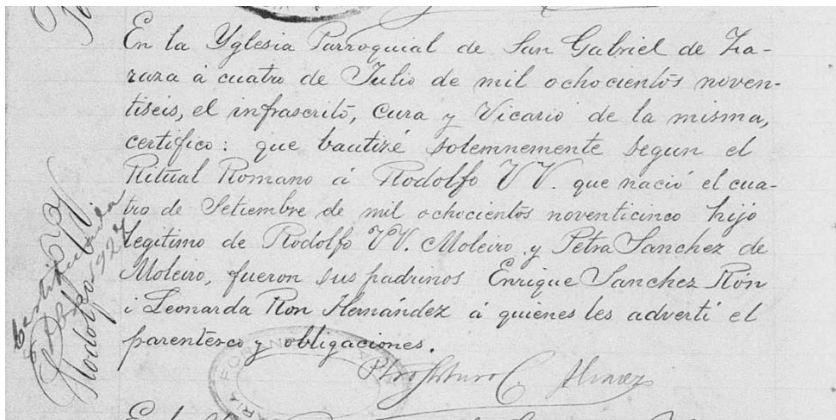 En la Yglesia Parroquial de San Gabriel de Za-
raza á cuatro de Julio de mil ochocientos noven-
tiseis, el infrascrito, Cura y Vicario de la misma,
certifico: que bautizé solemnemente segun el
Ritual Romano á Rodolfo VV. que nació el cua-
tro de Setiembre de mil ochocientos noventicinco hijo
legitimo de Rodolfo VV. Moleiro y Petra Sanchez de
Moleiro, fueron sus padrinos Enrique Sanchez Ron
i Leonarda Ron Hernández á quienes les advertí el
parentesco y obligaciones.
Rodolfo